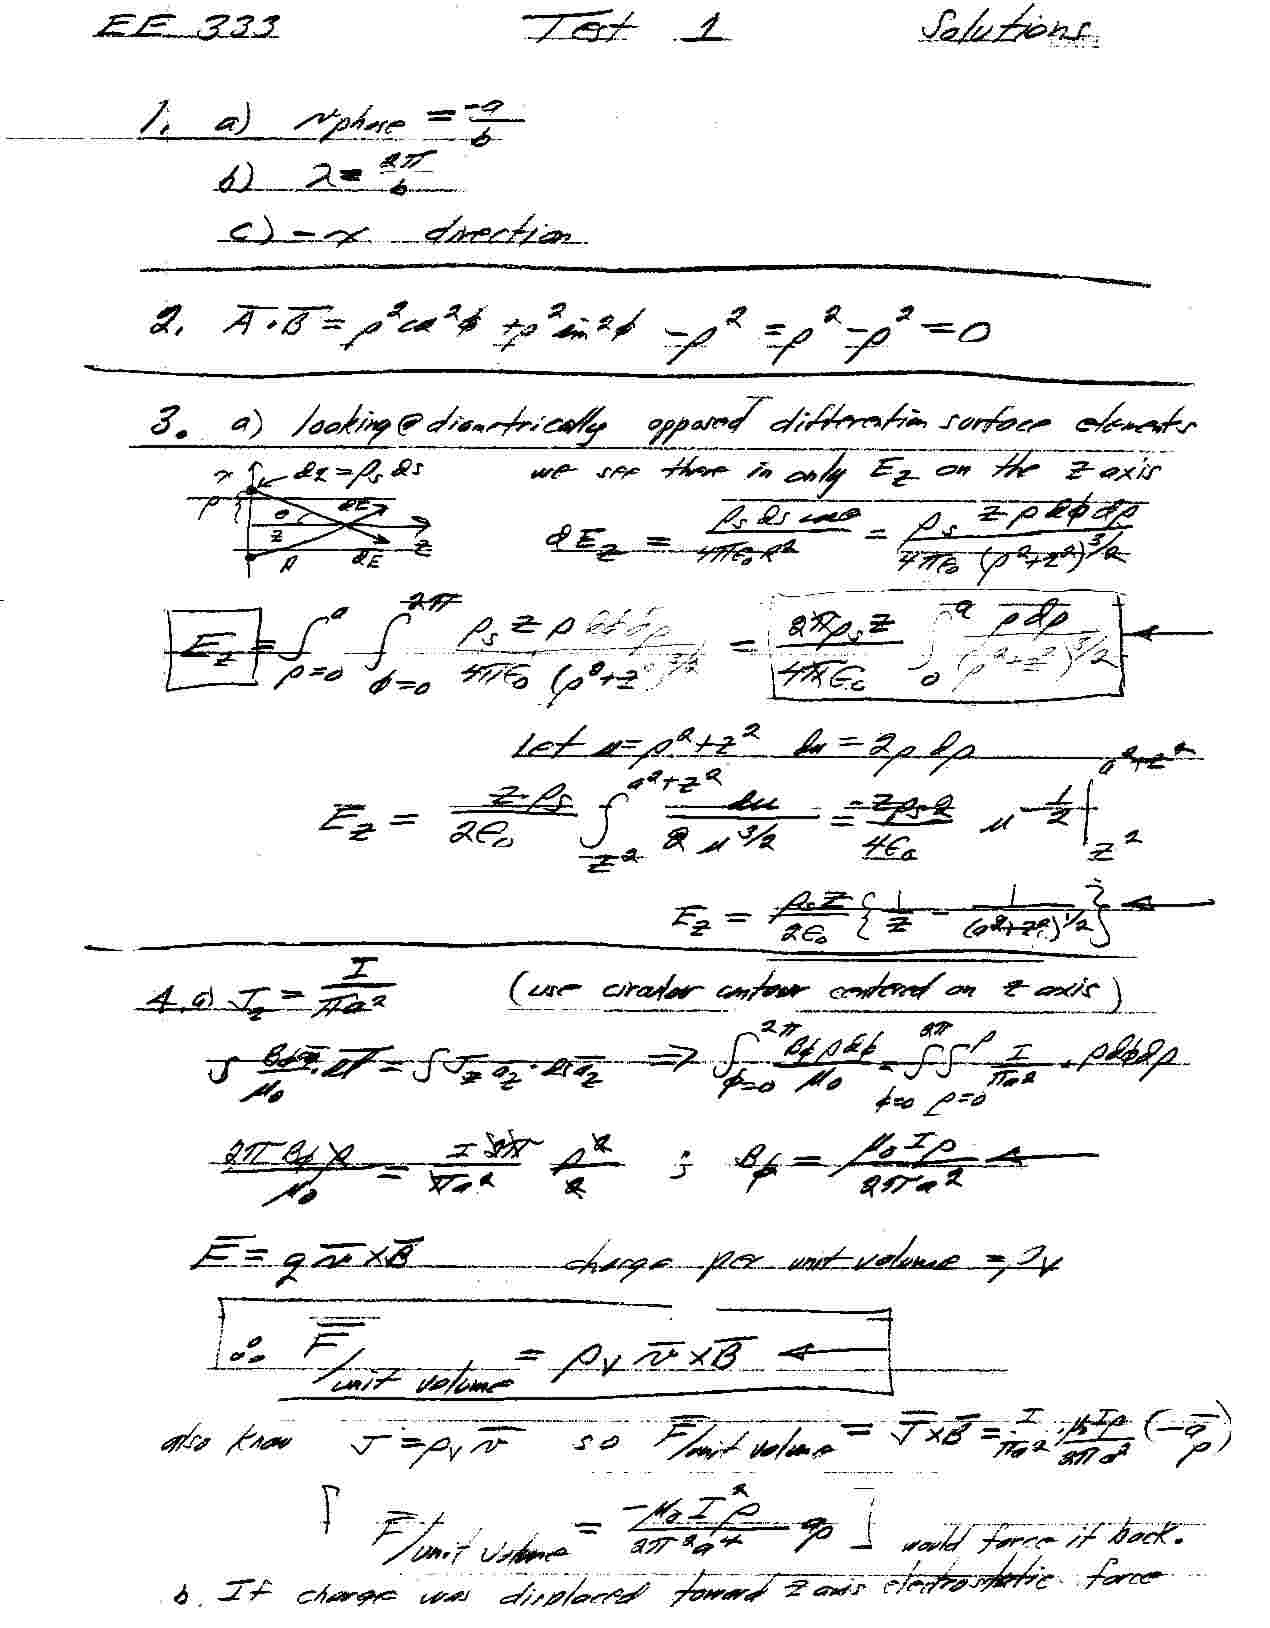 EE 333 Test 1 Solutions
1. a) v phase = -a/b
b) λ = 2π/b
c) -x direction
2. A̅·B̅ = ρ²cos²ϕ + ρ²sin²ϕ - ρ² = ρ² - ρ² = 0
3. a) looking @ diametrically opposed differential surface elements
x dq = ρs ds we see there is only Ez on the z axis
ρ θ dE z z R dE dEz = ρs ds cosθ / 4πε₀R² = ρs z ρ dϕ dρ / 4πε₀ (ρ²+z²)^3/2
Ez = ∫ρ=0^a ∫ϕ=0^2π ρs z ρ dϕ dρ / 4πε₀ (ρ²+z²)^3/2 = 2πρs z / 4πε₀ ∫0^a ρ dρ / (ρ²+z²)^3/2
Let u = ρ²+z² du = 2ρ dρ
Ez = zρs / 2ε₀ ∫z²^a²+z² du / 2 u^3/2 = -zρs2 / 4ε₀ u^-1/2 |z²^a²+z²
Ez = ρs z / 2ε₀ { 1/z - 1/(a²+z²)^1/2 }
4. a) Jz = I/πa² (use circular contour centered on z axis)
∫ Bϕa̅/μ₀ · dl̅ = ∫ Jz a̅z · ds a̅z ⇒ ∫ϕ=0^2π Bϕ ρ dϕ / μ₀ = ∫ϕ=0^2π ∫ρ=0^ρ I/πa² · ρ dϕ dρ
2π Bϕ ρ / μ₀ = I 2π / πa² ρ²/2 ; Bϕ = μ₀ I ρ / 2πa²
F̅ = q v̅ × B̅ charge per unit volume = ρv
∴ F̅/unit volume = ρv v̅ × B̅
also know J̅ = ρv v̅ so F̅/unit volume = J̅ × B̅ = I/πa² · μ₀Iρ/2πa² (-a̅ρ)
[ F̅/unit volume = -μ₀ I² ρ / 2π²a⁴ a̅ρ ] would force it back.
b. If charge was displaced toward z axis electrostatic force